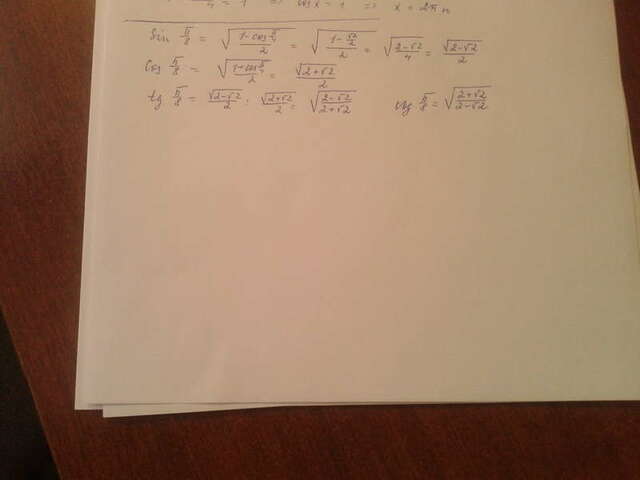 4 = 1 => cos x = 1 => x = 2πn
sin π/8 = √((1-cos π/4)/2) = √((1-√2/2)/2) = √((2-√2)/4) = √(2-√2)/2
cos π/8 = √((1-cos π/4)/2) = √(2+√2)/2
tg π/8 = √(2-√2)/2 : √(2+√2)/2 = √((2-√2)/(2+√2)) ctg π/8 = √((2+√2)/(2-√2))